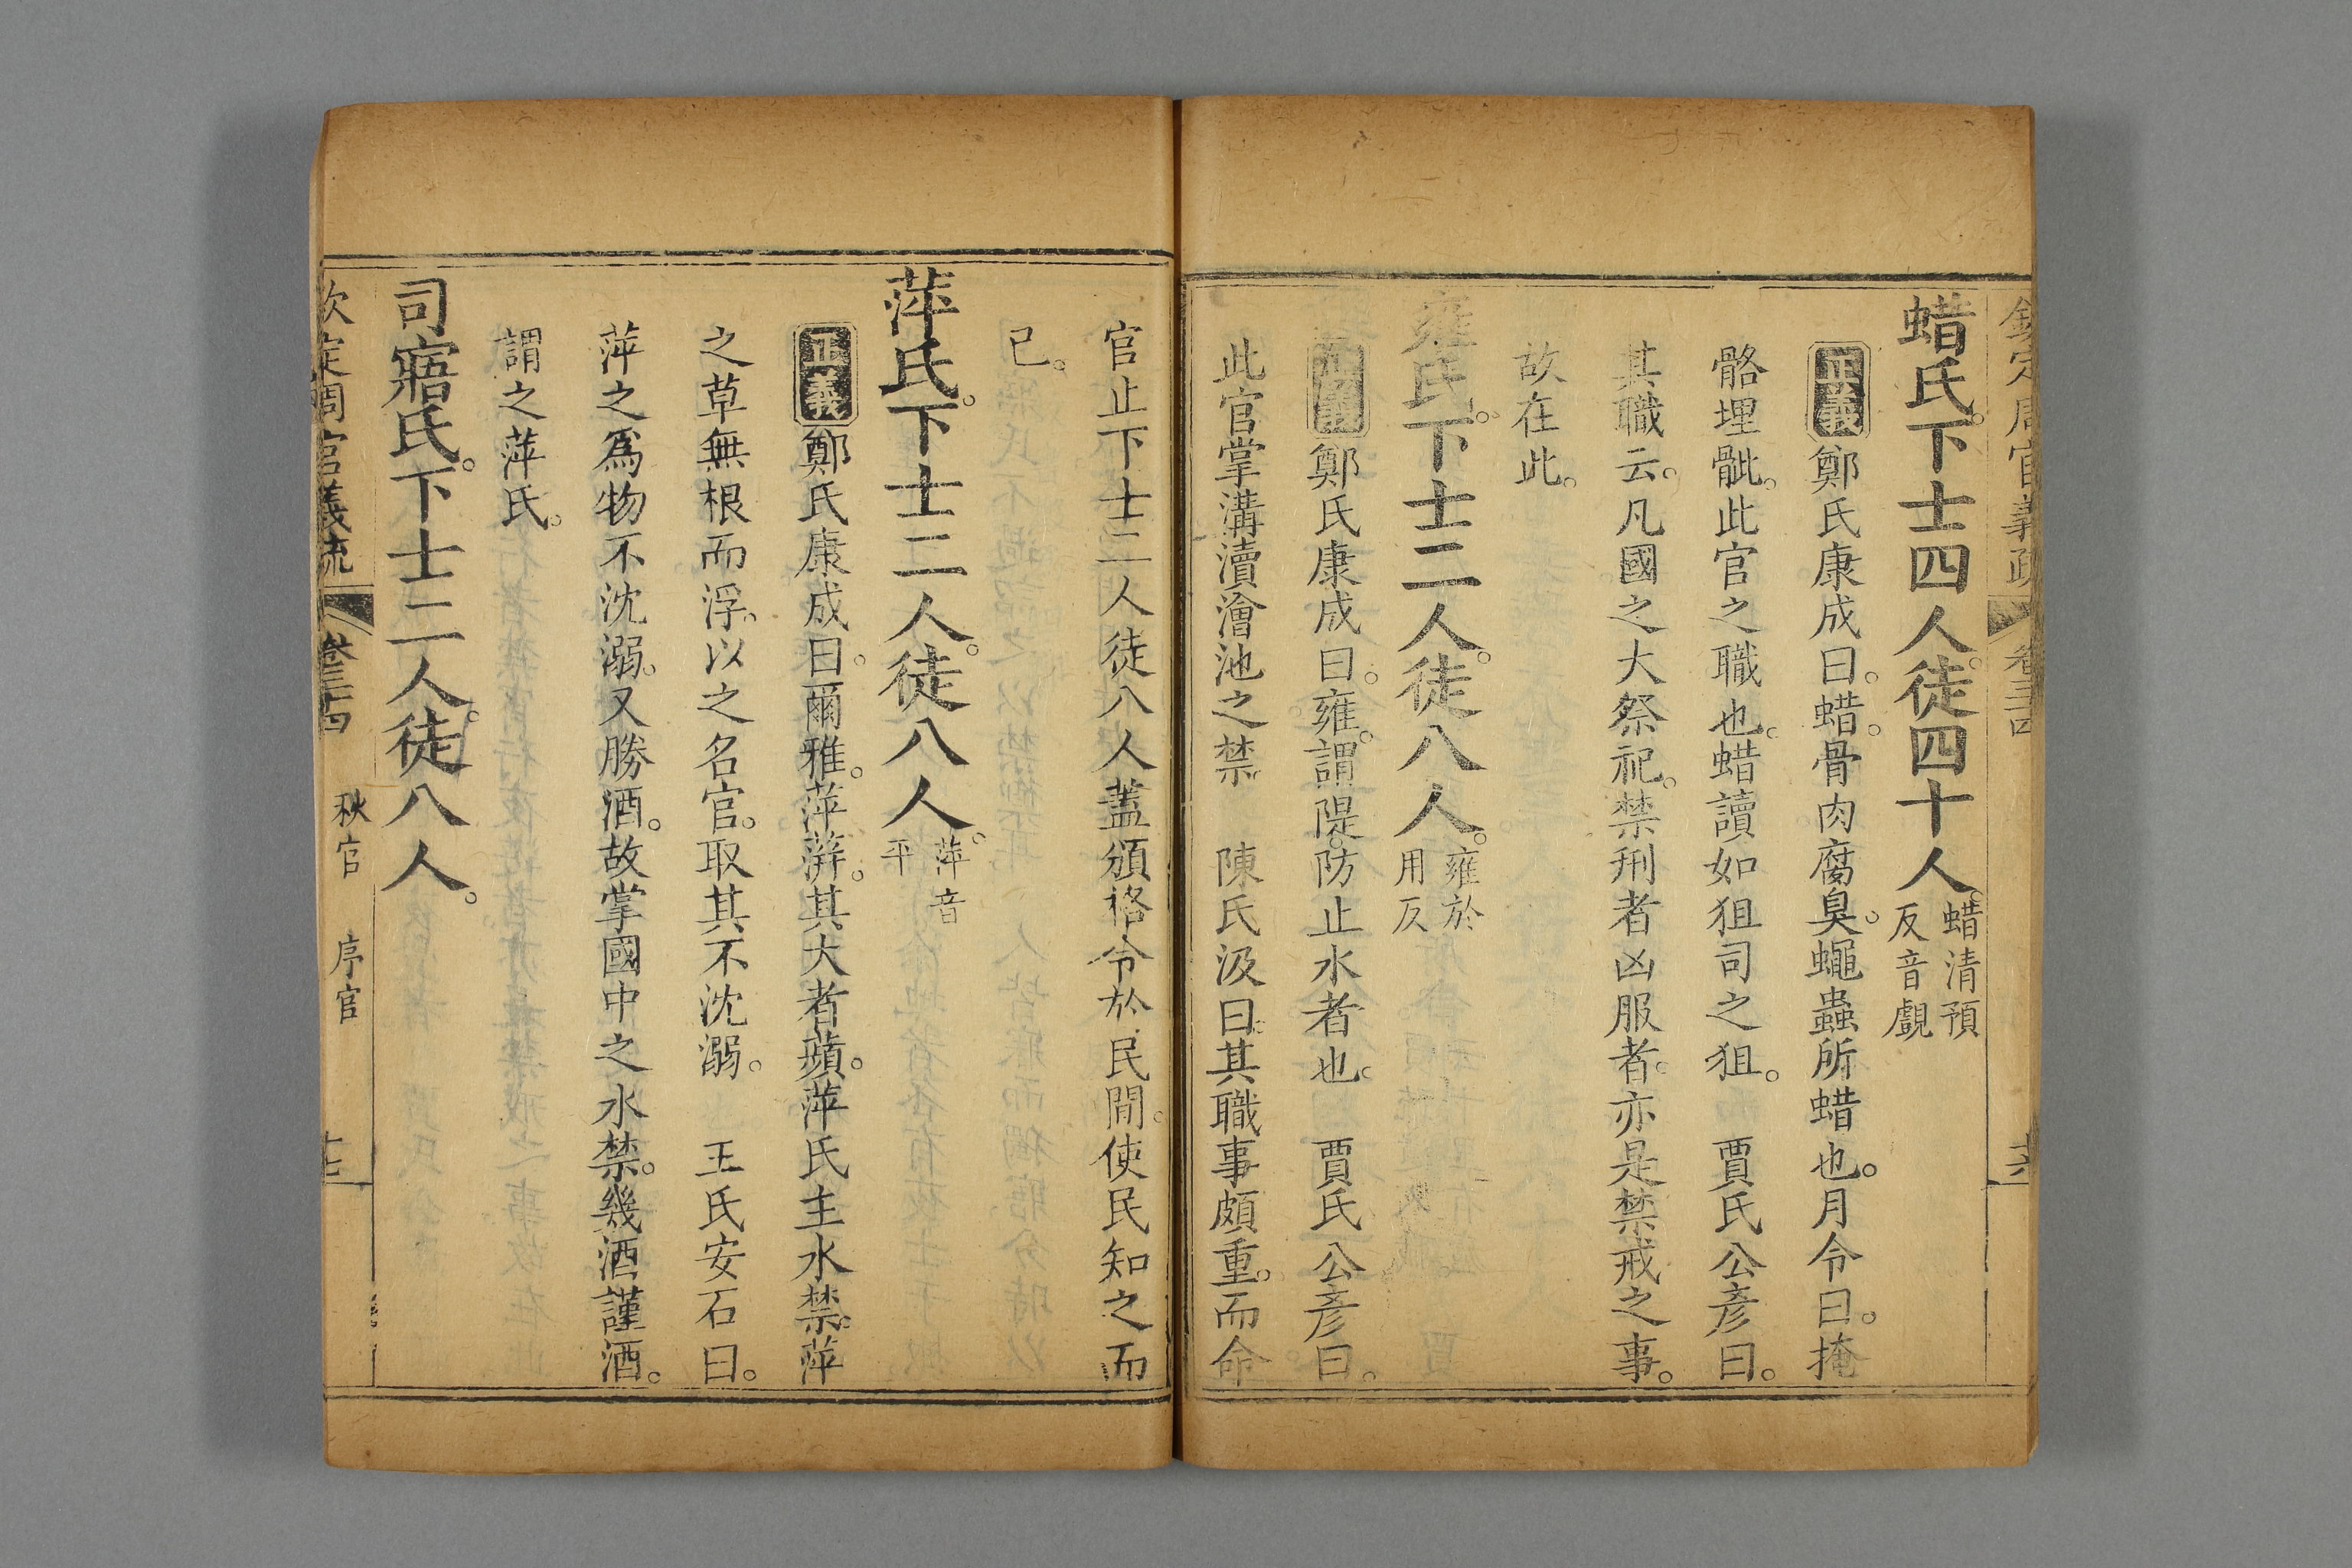 欽定周官義疏 卷三十四 十六
蜡氏。下士四人。徒四十人。蜡清預
反音覰
正義鄭氏康成曰。蜡。骨肉腐臭。蠅蟲所蜡也。月令曰。掩
骼埋骴。此官之職也。蜡讀如狙司之狙。 賈氏公彥曰。
其職云。凡國之大祭祀。禁刑者凶服者。亦是禁戒之事。
故在此。
雍氏。下士二人。徒八人。雍於
用反
正義鄭氏康成曰。雍。謂隄。防止水者也。 賈氏公彥曰。
此官掌溝瀆澮池之禁 陳氏汲曰。其職事頗重。而命
官止下士二人徒八人蓋頒格令於民間。使民知之而
已。
萍氏。下士二人。徒八人。萍音
平
正義鄭氏康成曰。爾雅。萍蓱。其大者蘋。萍氏主水禁。萍
之草無根而浮。以之名官。取其不沈溺。 王氏安石曰。
萍之爲物不沈溺。又勝酒。故掌國中之水禁。幾酒謹酒。
謂之萍氏。
司寤氏。下士二人。徒八人。
欽定周官義疏 卷三十四 秋官 序官 十七